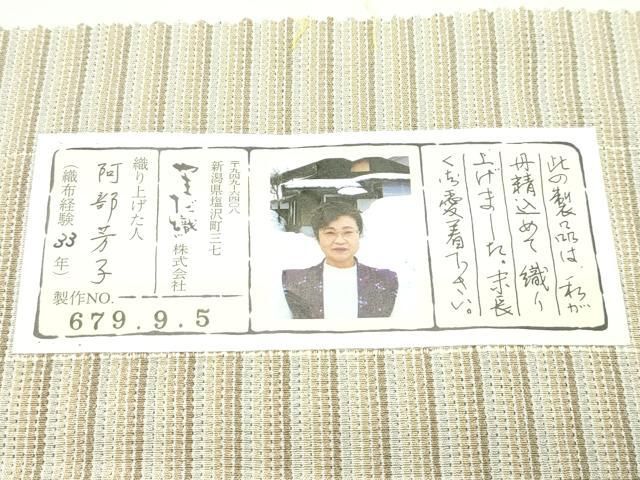 此の製品は、私が
丹精込めて織り
上げました。末長
くご愛着下さい。
〒九四九-六四〇八
新潟県塩沢町三七
やまだ織株式会社
織り上げた人
阿部芳子
（織布経験33年）
製作NO.
679.9.5